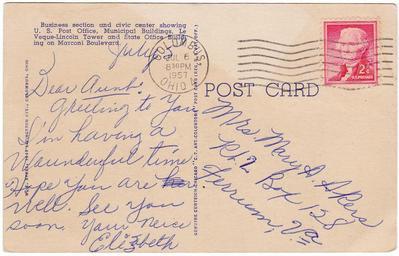 Business section and civic center showing
U. S. Post Office, Municipal Buildings, Le
Veque-Lincoln Tower and State Office Build-
ing on Marconi Boulevard.
COLUMBUS
JUL 6
8 30 PM
1957
OHIO
2¢
U.S. POSTAGE
POST CARD
July
Dear Aunt:
Greeting to you
I'm having a
Waunderful time
Hope you are
well. See you
soon. Your neice
Elizabeth
Mrs. Mary A. Akers
Rt. 2 Box 128
Ferrum, Va